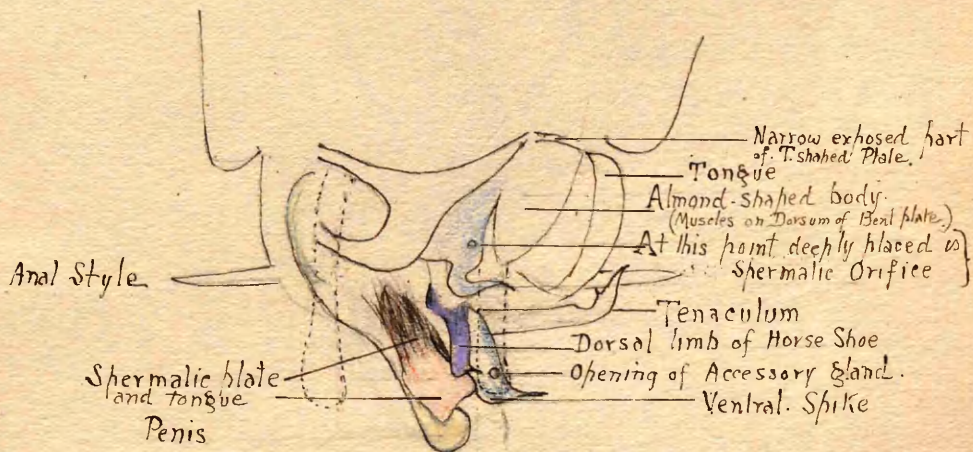 Narrow exposed part
of T. shaped Plate.
Tongue
Almond-shaped body.
(Muscles on Dorsum of Bent plate.)
At this point deeply placed is
Spermatic Orifice
Anal Style
Tenaculum
Dorsal limb of Horse Shoe
Opening of Accessory gland.
Ventral. Spike
Spermatic plate
and tongue
Penis